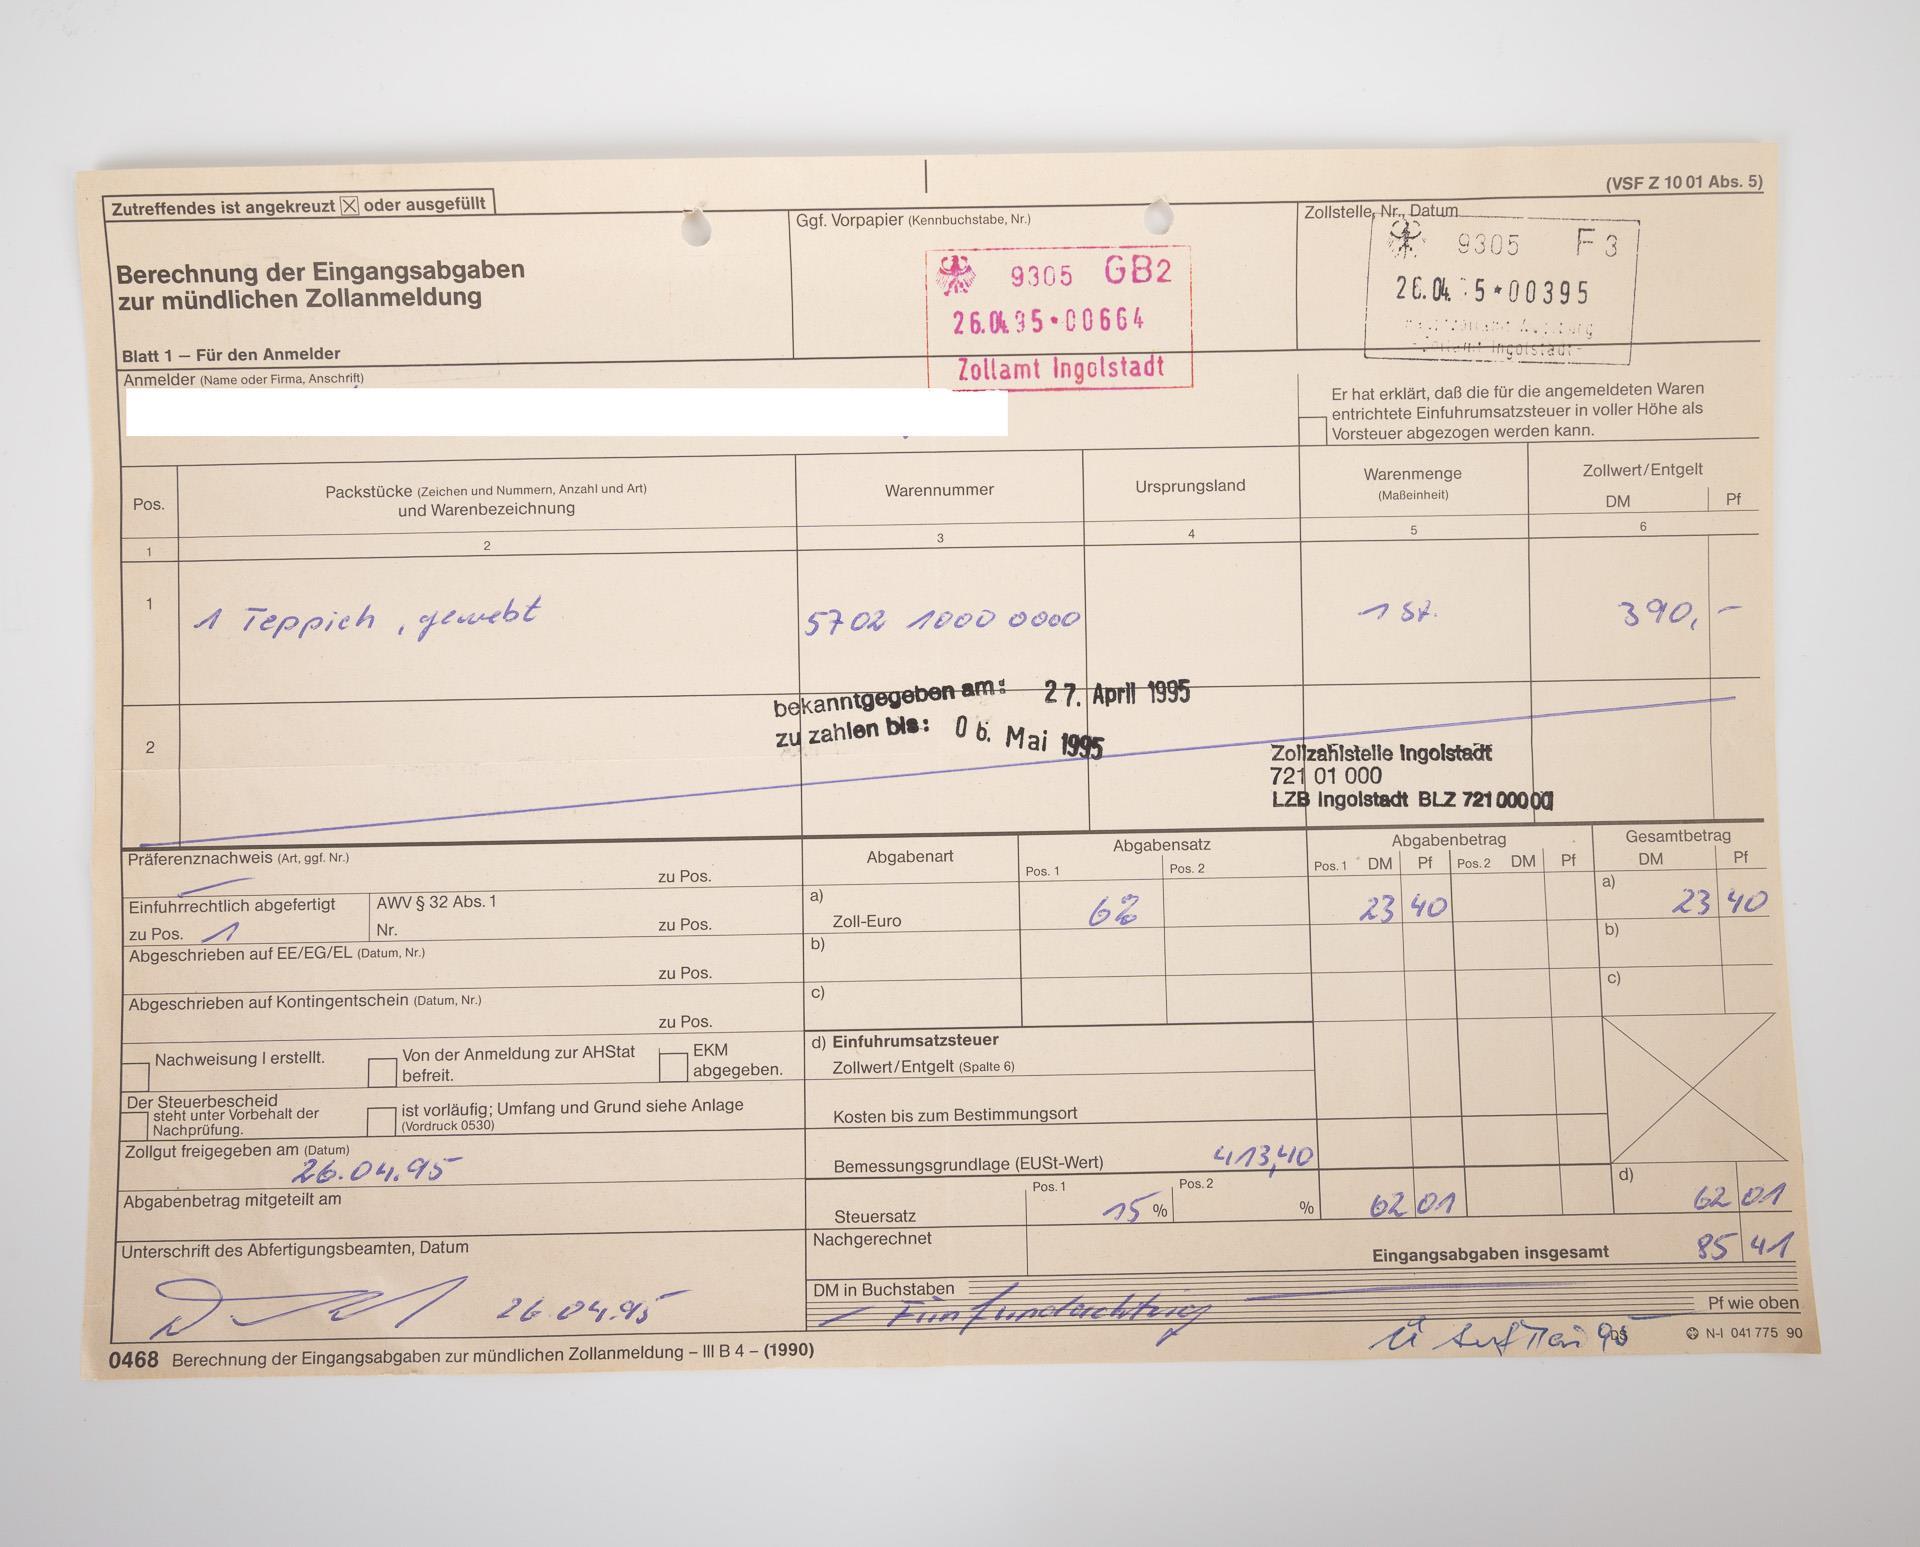 (VSF Z 10 01 Abs. 5)
Zutreffendes ist angekreuzt ☒ oder ausgefüllt
Berechnung der Eingangsabgaben
zur mündlichen Zollanmeldung
Blatt 1 – Für den Anmelder
Ggf. Vorpapier (Kennbuchstabe, Nr.)
9305 GB2
26.04.95*00664
Zollamt Ingolstadt
Zollstelle, Nr., Datum
9305 F3
26.04. 5*00395
Ingolstadt
Anmelder (Name oder Firma, Anschrift)
Er hat erklärt, daß die für die angemeldeten Waren
entrichtete Einfuhrumsatzsteuer in voller Höhe als
Vorsteuer abgezogen werden kann.
Pos.
Packstücke (Zeichen und Nummern, Anzahl und Art)
und Warenbezeichnung
Warennummer
Ursprungsland
Warenmenge
(Maßeinheit)
Zollwert/Entgelt
DM Pf
1 2 3 4 5 6
1 1 Teppich, gewebt 5702 1000 0000 1 St. 390,–
bekanntgegeben am: 27. April 1995
zu zahlen bis: 06. Mai 1995
2
Zollzahlstelle Ingolstadt
721 01 000
LZB Ingolstadt BLZ 721 000 00
Präferenznachweis (Art, ggf. Nr.)
zu Pos.
Einfuhrrechtlich abgefertigt
zu Pos. 1
AWV § 32 Abs. 1
Nr. zu Pos.
Abgeschrieben auf EE/EG/EL (Datum, Nr.)
zu Pos.
Abgeschrieben auf Kontingentschein (Datum, Nr.)
zu Pos.
Nachweisung I erstellt.
Von der Anmeldung zur AHStat
befreit.
EKM
abgegeben.
Der Steuerbescheid
steht unter Vorbehalt der
Nachprüfung.
ist vorläufig; Umfang und Grund siehe Anlage
(Vordruck 0530)
Zollgut freigegeben am (Datum)
26.04.95
Abgabenbetrag mitgeteilt am
Unterschrift des Abfertigungsbeamten, Datum
26.04.95
Abgabenart
Abgabensatz
Pos. 1 Pos. 2
Abgabenbetrag
Pos. 1 DM Pf Pos. 2 DM Pf
Gesamtbetrag
DM Pf
a) Zoll-Euro 6% 23 40 a) 23 40
b) b)
c) c)
d) Einfuhrumsatzsteuer
Zollwert/Entgelt (Spalte 6)
Kosten bis zum Bestimmungsort
Bemessungsgrundlage (EUSt-Wert) 413,40
Steuersatz Pos. 1 15 % Pos. 2 % 62 01 d) 62 01
Nachgerechnet
Eingangsabgaben insgesamt 85 41
DM in Buchstaben
– Fünfundachtzig –
Pf wie oben
0468 Berechnung der Eingangsabgaben zur mündlichen Zollanmeldung – III B 4 – (1990)
N-I 041 775 90